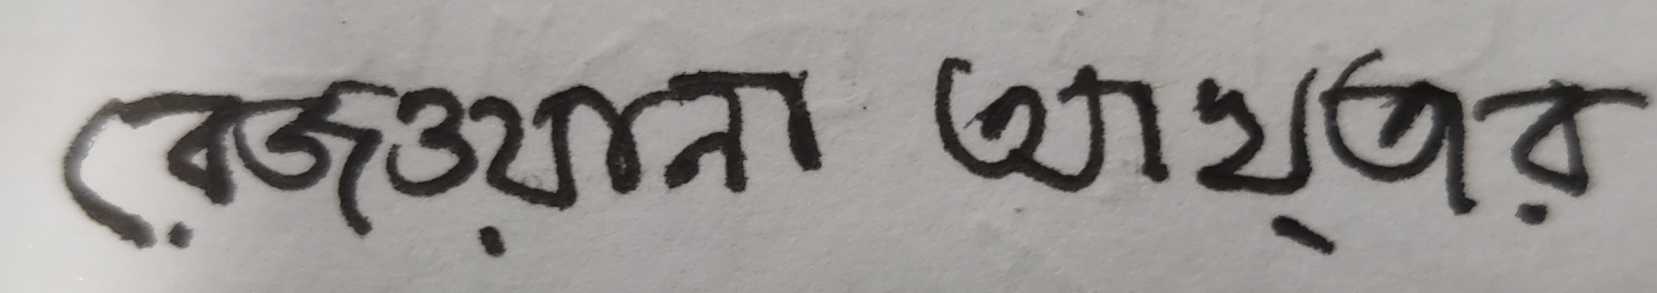 রেজওয়ানা আখ্তার